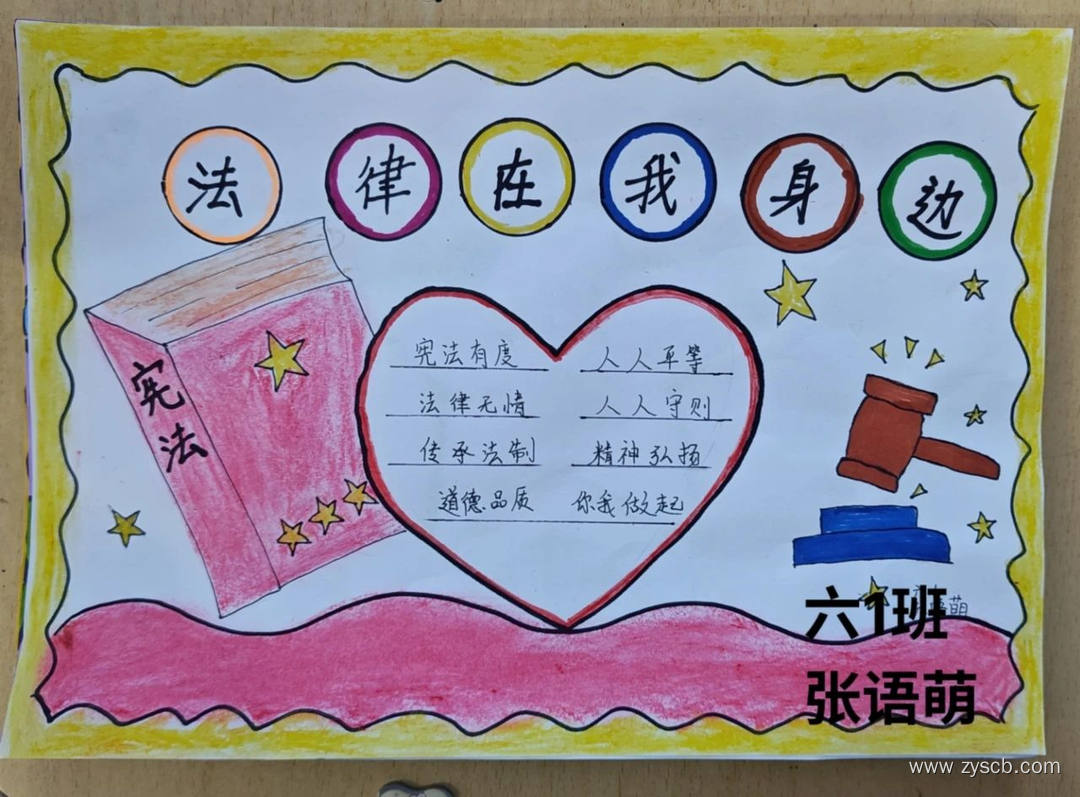 法律在我身边
宪法
宪法有度 人人平等
法律无情 人人守则
传承法制 精神弘扬
道德品质 你我做起
萌
六1班
张语萌
www.zyscb.com